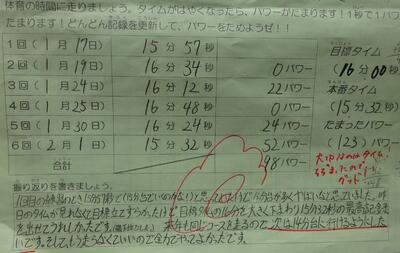 体育の時間に走りましょう。タイムがはやくなったら、パワーがたまります！1秒で1パワー
たまります！どんどん記録を更新して、パワーをためようぜ！！
1回（1月17日） 15分57秒
2回（1月19日） 16分34秒 0パワー
3回（1月24日） 16分12秒 22パワー
4回（1月25日） 16分48秒 0パワー
5回（1月30日） 16分24秒 24パワー
6回（2月1日） 15分32秒 52パワー
合計 98パワー
目標タイム
（16分00秒）
本番タイム
（15分32秒）
たまったパワー
（123）パワー
大切なのはタイム
振り返りを書きましょう。
1回目の練習のとき15分57秒で
16分台が多くやばいなと思っていました。昨
日のタイムが見れなくて目標立てずらかったけど目標タイムの16分を大きく下まわり15分32秒の最高記録
を出せてうれしかったです。来年も同じコースをまもるので次は14分台に行けるようにした
いです。そして、もう走らなくていいのでせいせいしてよかったです。